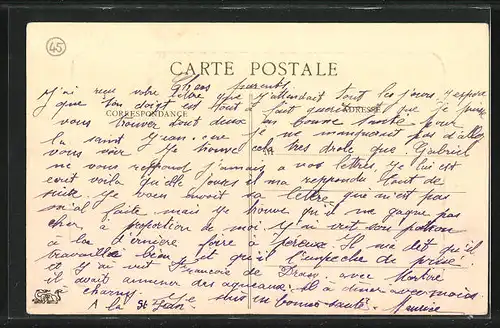 45
CARTE POSTALE
CORRESPONDANCE
ADRESSE
Chers parents
j'ai reçu votre lettre que j'attendait tout les jours. J'espère
que ton doigt est tout à fait que je puisse
vous trouver tout deux en bonne santé pour
la saint Jean. car je ne manquerait pas d'aller
vous voir. Je trouve cela tres drole que Gabriel
ne vous reppond jamais a vos lettres, Je lui est
ecrit voila quelle jours il ma reppondu tout de
suite. Je vous envoit sa lettre qui n'est pas
mal faite mais je trouve qu'il ne gagne pas
cher, a proportion de moi. J'ai vu son patron
à la dernière foire à Il ma dit qu'il
travaillait bien et qu'il
et J'ai vut Francois de avec
il avait amener des agneaux. il a diner avec moi
a charny Je suis en bonne santé. Maurice
A la St Jean